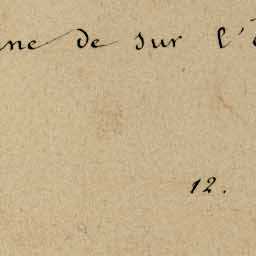 ne de sur l'
12.